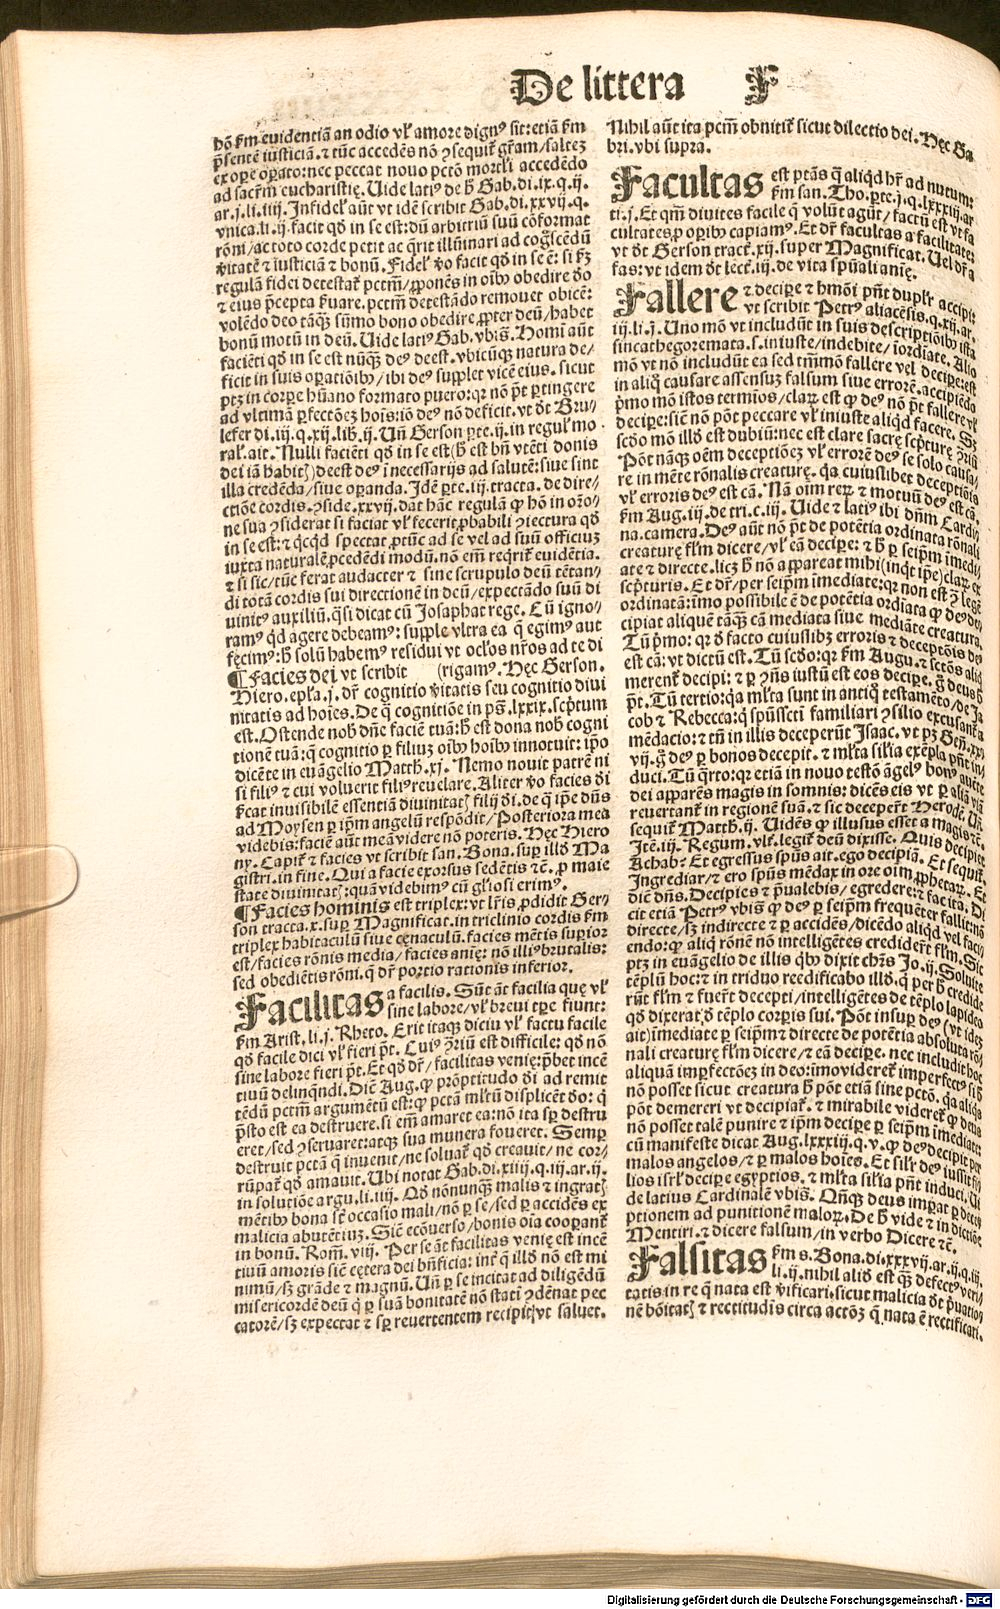 De littera F
hõ ẽm evidentiã an odio vl' amore dignꝰ sit: etiã ẽm
p̃sentẽ iusticiã. ⁊ tũc accedẽs nõ ꝯsequit̃ gr̃am/saltez
ex oꝑe oꝑato: nec peccat novo pctõ mortl'i accedẽdo
ad sacr̃m eucharistię. Uide latiꝰ de h̃ Gab. di. ix. q. ij.
ar. j. li. iiij. Infidel' aũt vt idẽ scribit Gab. di. xxvij. q.
vnica. li. ij. facit qđ in se est: dũ arbitriũ suũ cõformat
rõni/ac toto corde petit ac q̃rit illũinari ad cog̃scẽdũ
ṽitatẽ ⁊ iusticiã ⁊ bonũ. Fidel' ṽo facit qđ in se ẽ: si ẽm
regulã fidei detestat̃ pctm̃/ꝓponẽs in oĩbꝰ obedire deo
⁊ eius p̃cepta ẽuare. pctm̃ detestãdo removet obicẽ:
volẽdo deo tãq̃ꝫ sũmo bono obedire ꝓpter deũ/habet
bonũ motũ in deũ. Uide latiꝰ Gab. vbis̃. Homĩ aũt
faciẽti qđ in se est nũq̃ꝫ deꝰ deest. vbicũqꝫ natura de/
ficit in suis oꝑatiõibꝰ/ibi deꝰ supplet vicẽ eius. sicut
ptꝫ in corꝑe hũano formato puero: qꝛ nõ p̃t ꝑtingere
ad vltimã ꝑfectõeꝫ hoĩs: iõ deꝰ nõ deficit. vt đt Bru/
lefer di. iij. q. xij. lib. ij. Uñ Gerson ꝑte. ij. in regul' mo
ral'. ait. Nulli faciẽti qđ in se est (h̃ est bñ vtẽti donis
dei iã habitꝭ) deest deꝰ ĩ necessarijs ad salutẽ: siue sint
illa credẽda/siue oꝑanda. Idẽ ꝑte. iij. tracta. de dire/
ctiõe cordis. ꝯside. xxvij. dat hãc regulã ꝙ hõ in oꝛo/
ne sua ꝯsiderat si faciat vl' fecerit ꝓbabili ꝯiectura qđ
in se est: ⁊ qcqđ spectat ꝓtũc ad se vel ad suũ officiuꝫ
iuxta naturalẽ ꝓcedẽdi modũ. nõ em̃ reqrit̃ evidẽtia.
⁊ si sic/tũc ferat audacter ⁊ sine scrupulo deũ tẽtan/
di totã cordis sui directionẽ in deũ/expectãdo suũ di
uinitꝰ auxiliũ. qsi dicat cũ Josaphat rege. Cũ igno/
ramꝰ qđ agere debeamꝰ: supple vltra ea q̃ egimꝰ aut
fęcimꝰ: h̃ solũ habemꝰ residui vt ocl'os nr̃os ad te di
¶ Facies dei vt scribit (rigamꝰ. Hęc Gerson.
Hiero. epl'a. j. dr̃ cognitio ṽitatis seu cognitio divi
nitatis ad hoĩes. De q̃ cognitiõe in ps̃. lxxix. scp̃tum
est. Ostende nob̃ dñe faciẽ tuã: h̃ est dona nob̃ cogni
tionẽ tuã: q̃ cognitio ꝑ filiuꝫ oĩbꝰ hoĩbꝰ innotuit: ip̃o
dicẽte in evãgelio Matth. xj. Nemo novit patrẽ ni
si filiꝰ ⁊ cui voluerit filiꝰ revelare. Aliter ṽo facies đi
ẽcat invisibilẽ essentiã divinitatꝭ filij đi. de q̃ ip̃e dñs
ad Moysen ꝑ ip̃m angelũ respõdit/Posteriora mea
videbis: faciẽ aũt meã videre nõ poteris. Hęc Hiero
ny. Capit̃ ⁊ facies vt scribit san. Bona. suꝑ illđ Ma
gistri. in fine. Qui a facie exorsus sedẽtis ⁊c̃. ꝓ maie
state divinitatꝭ: quã videbimꝰ cũ gl'iosi erimꝰ.
¶ Facies hominis est triplex: vt lr̃is ꝓdidit Ger/
son tracta. x. suꝑ Magnificat. in triclinio cordis ẽm
triplex habitaculũ siue cęnaculũ. facies mẽtis suꝑior
est/facies rõnis media/facies anię: nõ illiꝰ brutalis:
sed obediẽtis rõni. q̃ dr̃ portio rationis inferior.
Facilitas a facilis. Sũt aũt facilia quę vl'
sine labore/vl' brevi tꝑe fiunt:
ẽm Arist. li. j. Rheto. Erit itaqꝫ diciu vl' factu facile
qđ facile dici vl' fieri p̃t. Cuiꝰ ꝯriũ est difficile: qđ nõ
sine labore fieri p̃t. Et qđ dr̃/facilitas venię: p̃bet incẽ
tivũ delinqũdi. Diẽ Aug. ꝙ prõptitudo đi ad remit
tẽdũ pctm̃ argumẽtũ est: ꝙ pctã ml'tũ displicẽt đo: q̃
p̃sto est ea destruere. si em̃ amaret ea: nõ ita sꝑ destru
eret/sed ꝯservaret: atqꝫ sua munera foueret. Semꝑ
destruit pctã q̃ invenit/ne soluat̃ qđ creavit/ne cor/
rũpat̃ qđ amavit. Ubi notat Gab. di. xiiij. q. iij. ar. ij.
in solutiõe argu. li. iiij. Qđ nõnunqꝫ malis ⁊ ingratꝭ
mẽtibꝰ bona sũt occasio mali/nõ ꝑ se/sed ꝑ accidẽs ex
malicia abutẽtiuꝫ. Sic̃ ecõverso/bonis oĩa cooꝑant̃
in bonũ. Rom̃. viij. Per se aũt facilitas venię est incẽ
tivũ amoris sic̃ cętera dei bñficia: int̃ q̃ illđ nõ est mi
nimũ/sꝫ grãde ⁊ magnũ. Uñ ꝑ se incitad ad diligẽdũ
misericordẽ deũ q̃ ꝑ suã bonitatẽ nõ statĩ ꝯdẽnat pec
catorẽ/sꝫ expectat ⁊ sꝑ revertentem recipit/vt salvet.
Nihil aũt ita pctm̃ obnitit̃ sicut dilectio dei. Hęc Ga
bri. vbi supra.
Facultas est ptãs q̃ aliqđ hr̃ ad nutum:
ẽm san. Tho. ꝑte. j. q. lxxxiij. ar
ti. j. Et qm̃ divites facile q̃ volũt agũt/factũ est vt fa
cultates ꝓ opibꝰ capiamꝰ. Et dr̃ facultas a facilitate:
vt đt Gerson tract̃. xij. super Magnificat. Uel dr̃ a
fas: vt idem đt lect̃. iij. de vita spũali anię.
Fallere ⁊ deciꝑe ⁊ hmõi p̃nt dupl'r accipi:
vt scribit Petrꝰ aliacẽsis. q. xij. ar.
iij. li. j. Uno mõ vt includũt in suis descriptiõibꝰ ista
sincathegoremata. s. iniuste/indebite/ĩordiate. Alio
mõ vt nõ includũt ea sed tm̃mõ fallere vel deciꝑe: est
in aliq̃ causare assensuꝫ falsum siue errorẽ. accipiẽdo
p̃mo mõ istos termios/claꝝ est ꝙ deꝰ nõ p̃t fallere vl'
deciꝑe: sic̃ nõ põt peccare vl' iniuste aliqđ facere. Sꝫ
scđo mõ illđ est dubiũ: nec est clare sacrę scp̃turę ꝯriũ
Põt nãqꝫ oẽm deceptiõeꝫ vl' errorẽ deꝰ se solo causa/
re in mẽte rõnalis creaturę. qa cuiuslibet deceptiõis
vl' erroris deꝰ est cã. Nã oĩm reꝝ ⁊ motuũ deꝰ est cã.
ẽm Aug. iij. de tri. c. iij. Uide ⁊ latiꝰ ibi dñm Cardi
na. camera. Deꝰ aũt nõ p̃t de potẽtia ordinata rõnali
creaturę fl'm dicere/vl' eã deciꝑe: ⁊ h̃ ꝑ seip̃m ĩmedi/
ate ⁊ directe. licꝫ h̃ nõ appareat mihi (inqt ip̃e) claꝝ ex
scp̃turis. Et dr̃/per seip̃m ĩmediate: qꝛ non est ꝯ legẽ
ordinatã: ĩmo possibile ẽ de potẽtia ordiata ꝙ deꝰ de/
cipiat aliquẽ tãq̃ꝫ cã mediata siue mediãte creatura.
Tũ p̃mo: qꝛ đ facto cuiuslibꝫ erroris ⁊ deceptõis deꝰ
est cã: vt dictũ est. Tũ scđo: qꝛ ẽm Augu. ⁊ sctõs aliq
merent̃ decipi: ⁊ ꝑ ꝯñs iustũ est eos deciꝑe. g̃ deus h̃
p̃t. Tũ tertio: qa ml'ta sunt in antiq̃ testamẽto/de Ja
cob ⁊ Rebecca: q̃ spũssctĩ familiari ꝯsilio excusant̃ a
mẽdacio: ⁊ tñ in illis deceperũt Isaac. vt pꝫ Geñ. xx
vij. g̃ deꝰ ꝑ bonos decepit. ⁊ ml'ta sil'ia exẽpla p̃nt in/
duci. Tũ q̃rto: qꝛ etiã in novo testõ ãgelꝰ bonꝰ aucte
dei apparẽs magis in somnis: dicẽs eis vt ꝑ aliã viã
revertant̃ in regionẽ suã. ⁊ sic decepert̃ Herodẽ. Uñ
sequit̃ Matth. ij. Uidẽs ꝙ illusus esset a magis ⁊c̃.
Itẽ. iij. Regum. vlt̃. legit̃ deũ dixisse. Quis decipiet
Achab? Et egressus spũs ait. ego decipiã. Et sequit̃.
Ingrediar/⁊ ero spũs mẽdax in ore oĩm ꝓphetaꝝ. Et
diẽ dñs. Decipies ⁊ p̃ualebis/egredere: ⁊ fac ita. Di
cit etiã Petrꝰ vbis̃ ꝙ deꝰ ꝑ seip̃m frequẽter fallit: nõ
directe/sꝫ indirecte ⁊ ꝑ accidẽs/dicẽdo aliqđ vel faci/
endo: ꝙ aliq̃ rõnẽ nõ intelligẽtes credider̃t fl'm. Sic
ptꝫ in evãgelio de illis qbꝰ dixit chr̃s Jo. ij. Soluite
tẽplũ hoc: ⁊ in triduo reedificabo illđ. q̃ per h̃ credide
rũt fl'm ⁊ fuer̃t decepti/intelligẽtes de tẽplo lapideo
qđ dixerat đ tẽplo corꝑis sui. Põt insuꝑ deꝰ (vt ideꝫ
ait) ĩmediate ꝑ seip̃m ⁊ directe de potẽtia absoluta rõ/
nali creaturę fl'm dicere/⁊ eã deciꝑe. nec includit hoc
aliquã imꝑfectõeꝫ in deo: ĩmo videret̃ imperfectꝰ si h̃
nõ posset sicut creatura h̃ põt etiã sine pctõ. qa aliqs
põt demereri vt decipiat̃. ⁊ mirabile videret̃ ꝙ deus
nõ posset talẽ punire ⁊ ip̃m deciꝑe ꝑ seip̃m ĩmediate:
cũ manifeste dicat Aug. lxxxiij. q. v. ꝙ deꝰ decipit per
malos angelos/⁊ ꝑ malos hoĩes. Et sil'r deꝰ iussit fi/
lios isrl' deciꝑe egyptios. ⁊ ml'ta sil'ia p̃nt induci. Ui
de latius Cardinalẽ vbis̃. Qñqꝫ deus imꝑat ꝑ dece
ptionem ad punitionẽ maloꝝ. De h̃ vide ⁊ in dictiõe
Mentiri. ⁊ dicere falsum/in verbo Dicere ⁊c̃.
Falsitas ẽm s. Bona. di. xxxvij. ar. ij. q. iij.
li. ij. nihil aliđ est q̃ꝫ defectꝰ veri/
tatis in re q̃ nata est ṽificari. sicut malicia đt p̃uatio/
nẽ bõitatꝭ ⁊ rectitudĩs circa actõꝫ q̃ nata ẽ rectificari.
Digitalisierung gefördert durch die Deutsche Forschungsgemeinschaft - DFG